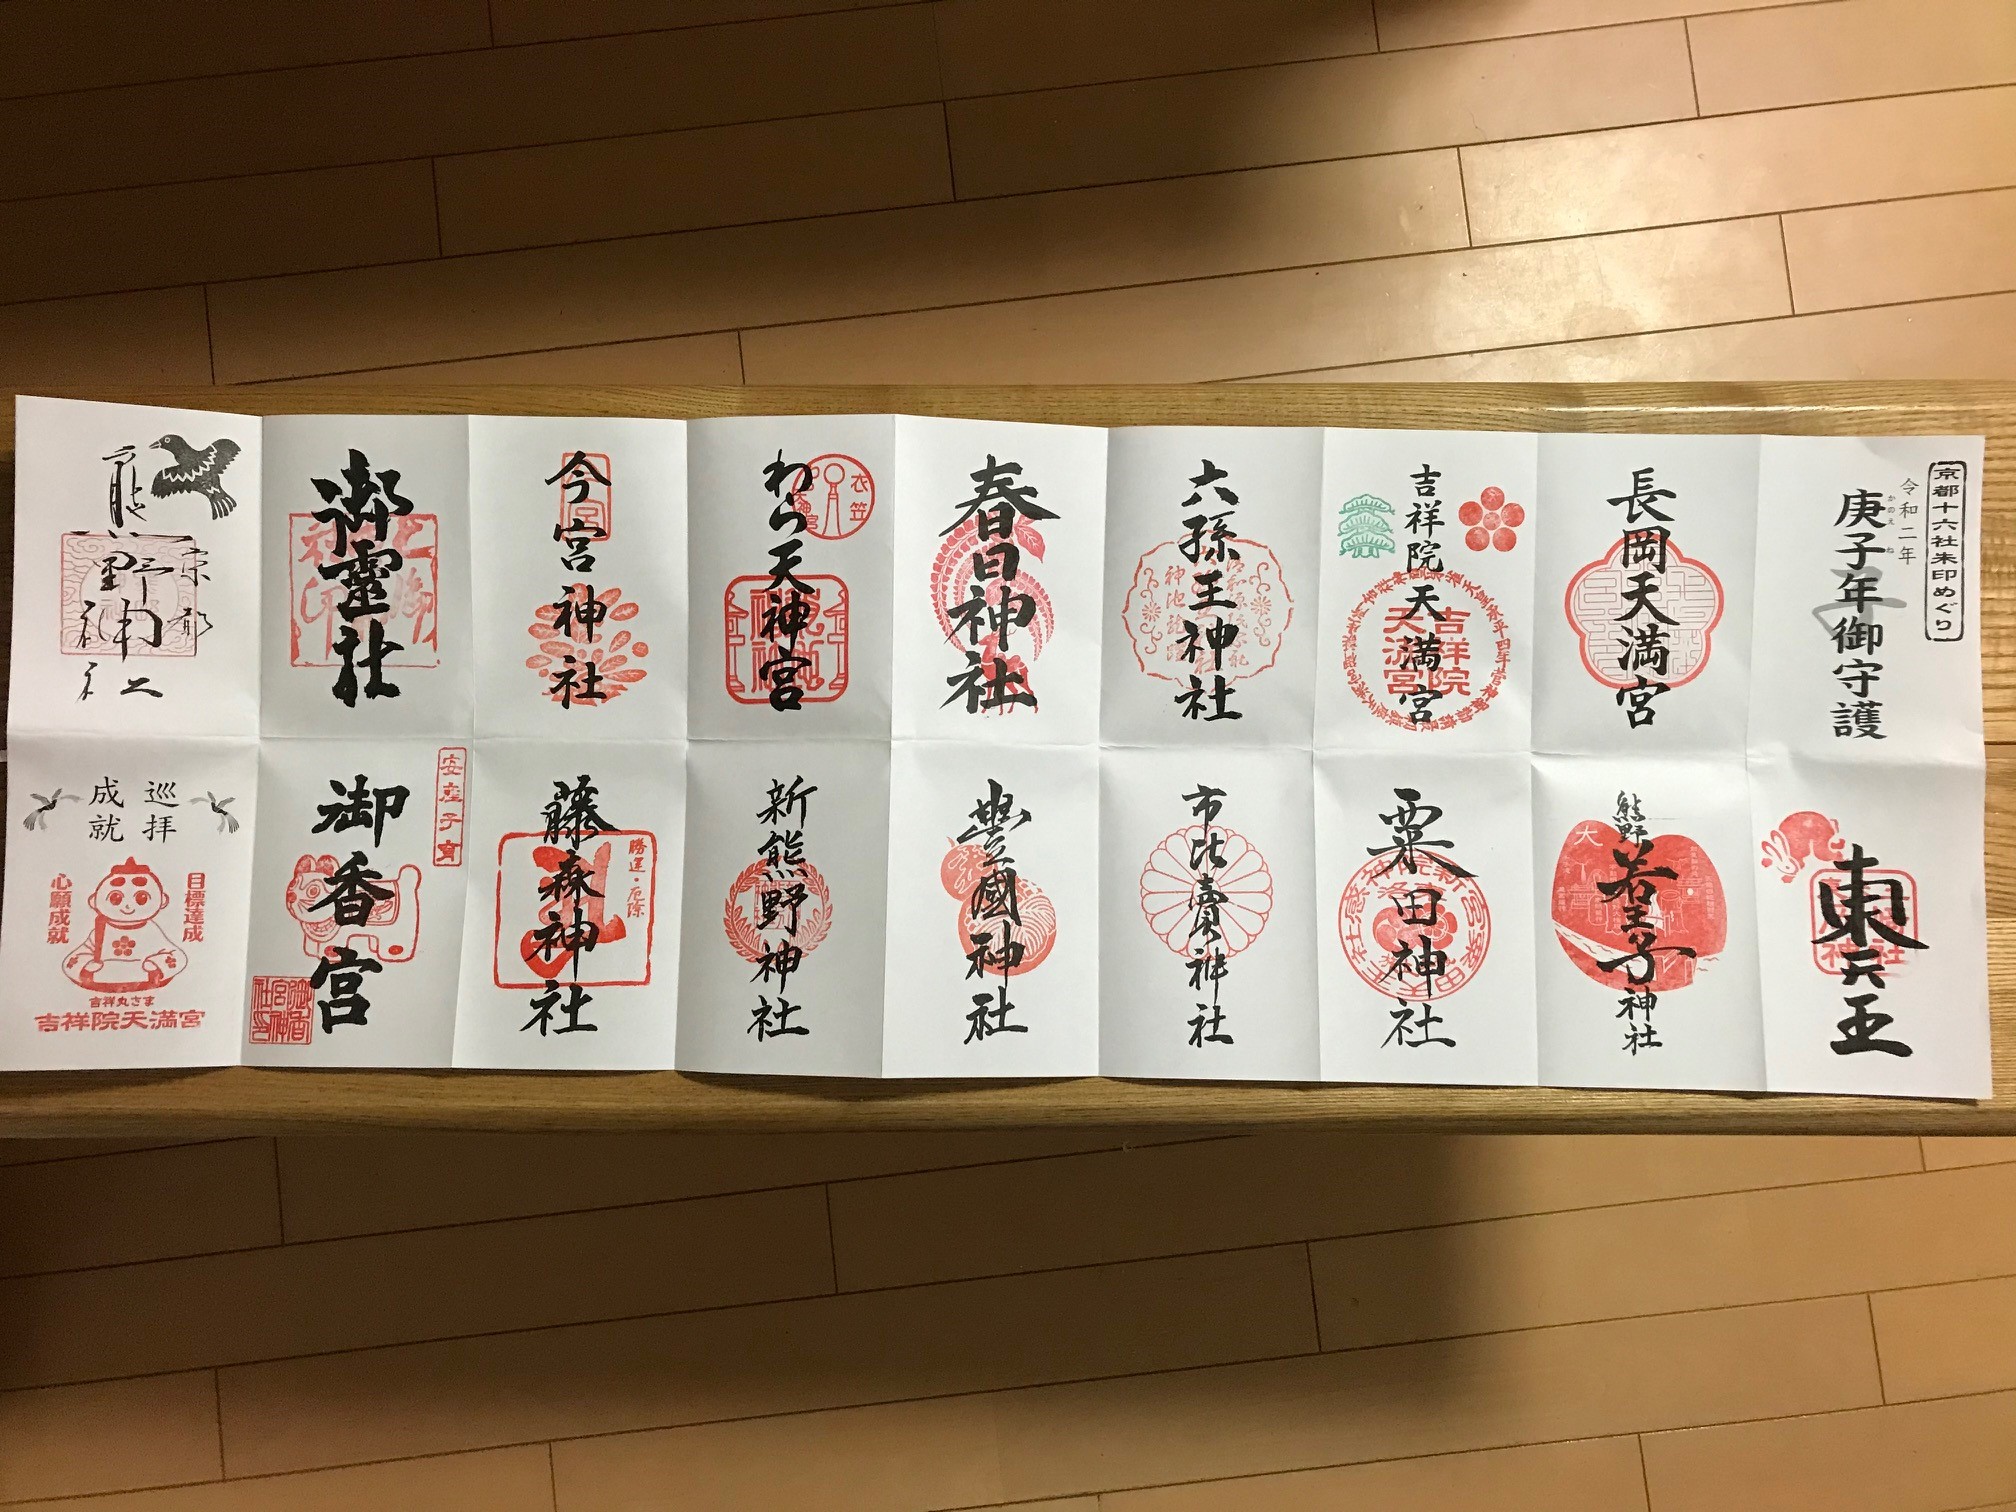 京都十六社朱印めぐり
令和二年
庚子年御守護
かのえ ね
長岡天満宮
吉祥院天満宮
吉祥院
天満宮
六孫王神社
春日神社
わら天神宮
衣笠
今宮神社
今宮
御靈社
京都
熊野神社
東天王
熊野若王子神社
大
粟田神社
市比賣神社
豐國神社
新熊野神社
藤森神社
勝運・厄除
御香宮
安産子育
巡拝
成就
目標達成
心願成就
吉祥丸さま
吉祥院天満宮